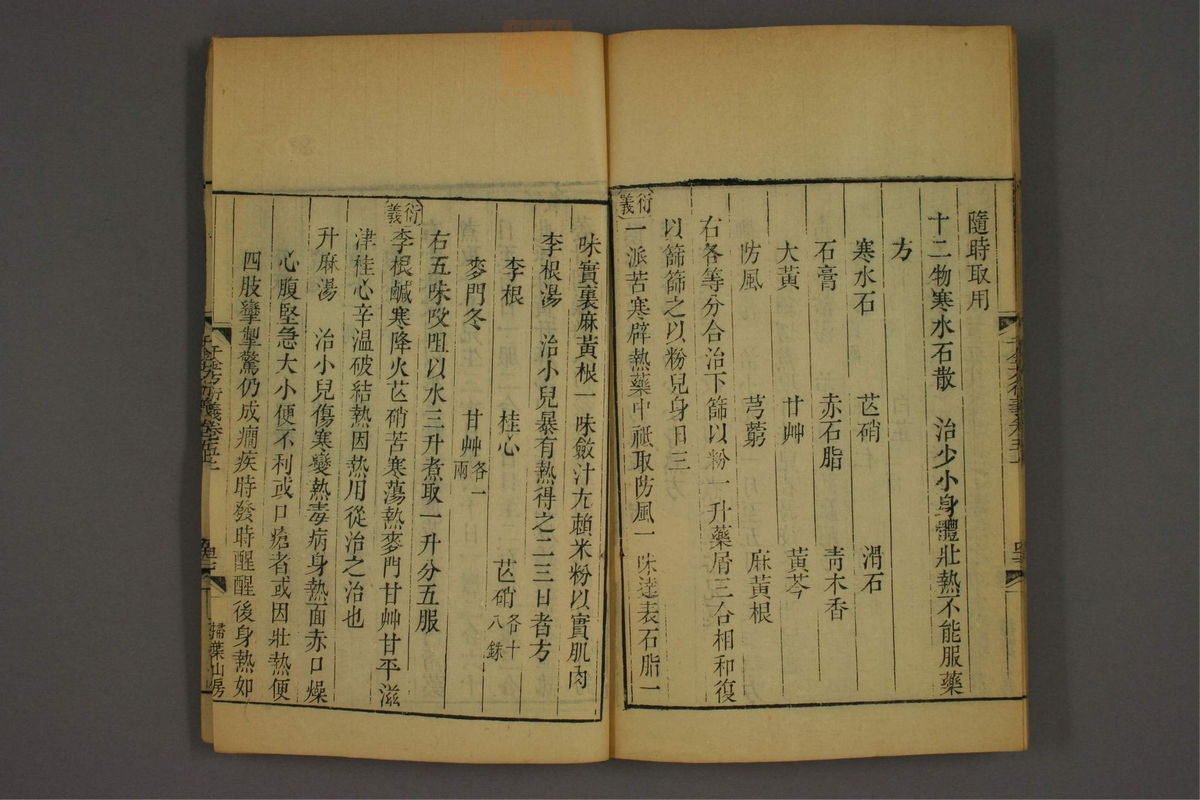 隨時取用
十二物寒水石散　治少小身體壯熱不能服藥
方
寒水石　芒硝　滑石
石膏　赤石脂　靑木香
大黃　甘艸　黃芩
防風　芎藭　麻黃根
右各等分合治下篩以粉一升藥屑三合相和復
以篩篩之以粉兒身日三
衍義
一派苦寒辟熱藥中祇取防風一味達表石脂一
味實裏麻黃根一味斂汁尢賴米粉以實肌肉
李根湯　治小兒暴有熱得之二三日者方
李根　桂心　芒硝各十八銖
麥門冬　甘艸各一兩
右五味㕮咀以水三升煮取一升分五服
衍義
李根鹹寒降火芒硝苦寒蕩熱麥門甘艸甘平滋
津桂心辛溫破結熱因熱用從治之治也
升麻湯　治小兒傷寒變熱毒病身熱面赤口燥
心腹堅急大小便不利或口瘡者或因壯熱便
四肢攣掣驚仍成癎疾時發時醒醒後身熱如
千金方衍義卷五
掃葉山房